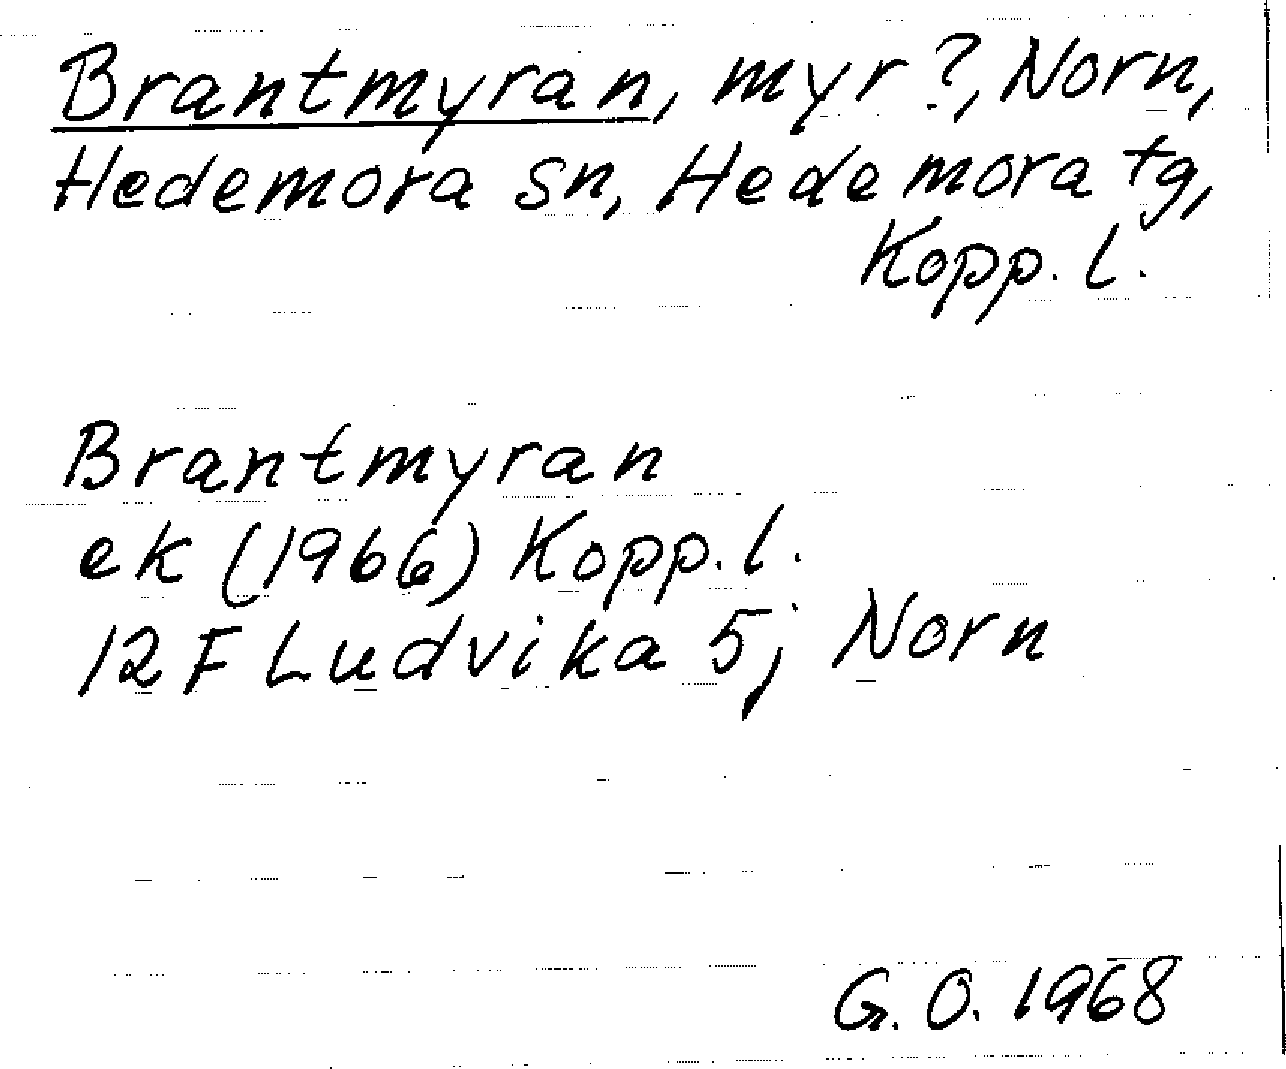 Brantmyran, myr?, Norn,
Hedemora sn, Hedemora tg,
Kopp. l.
Brantmyran
ek (1966) Kopp. l.
12 F Ludvika 5j Norn
G. O. 1968